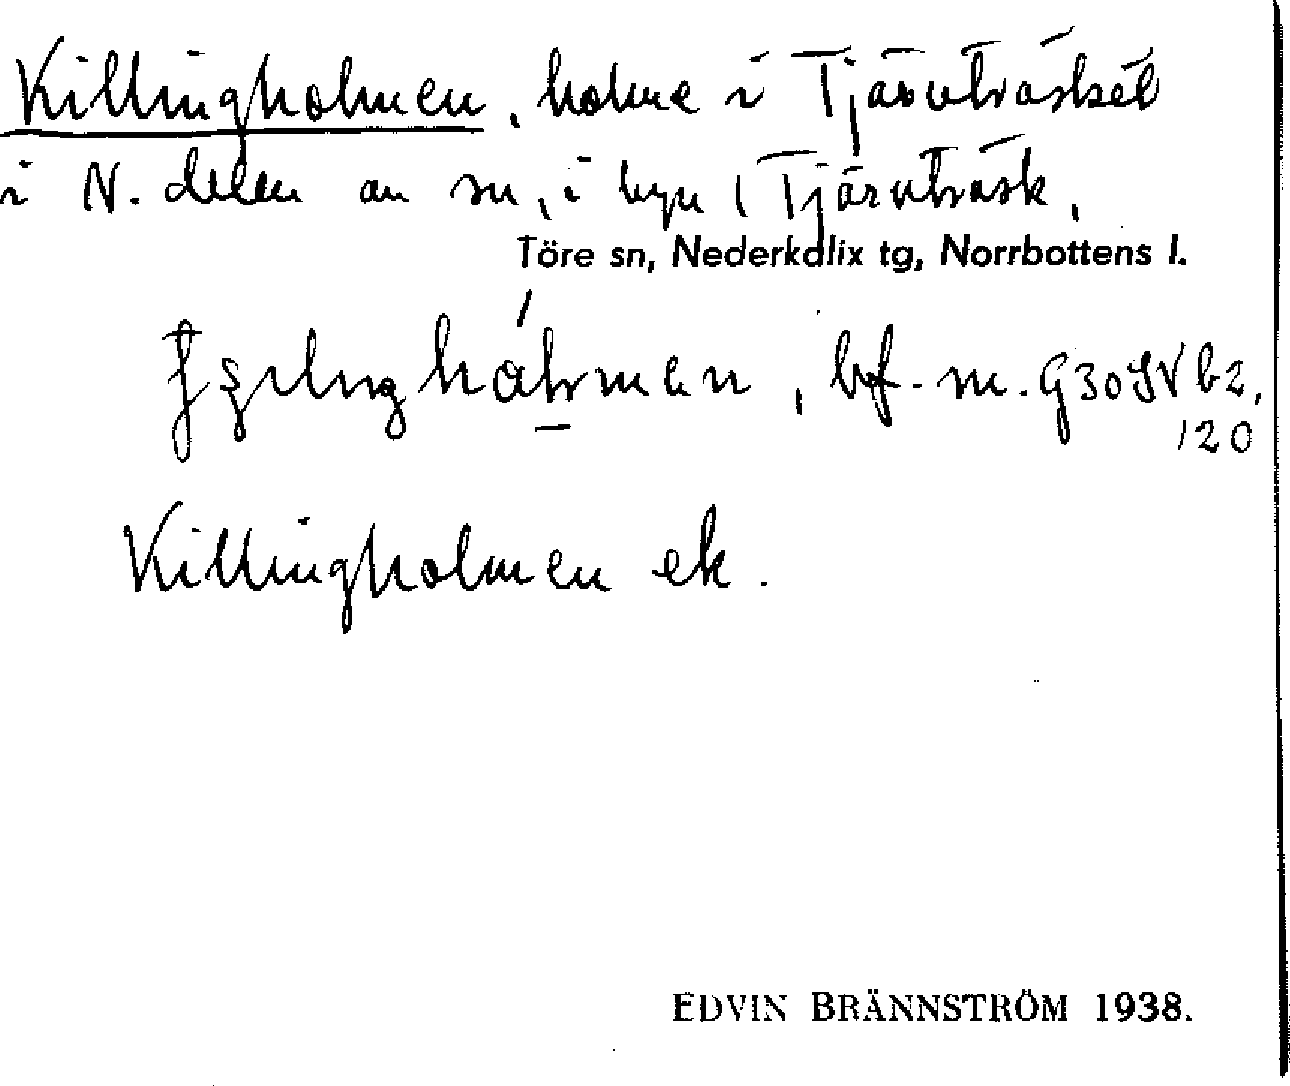 Killingholmen, holme i Tjärvträsket
i N. delen av sn, i byn Tjärvträsk,
Töre sn, Nederkalix tg, Norrbottens l.
bef. m. G30SV b2,
120
Killingholmen ek.
EDVIN BRÄNNSTRÖM 1938.